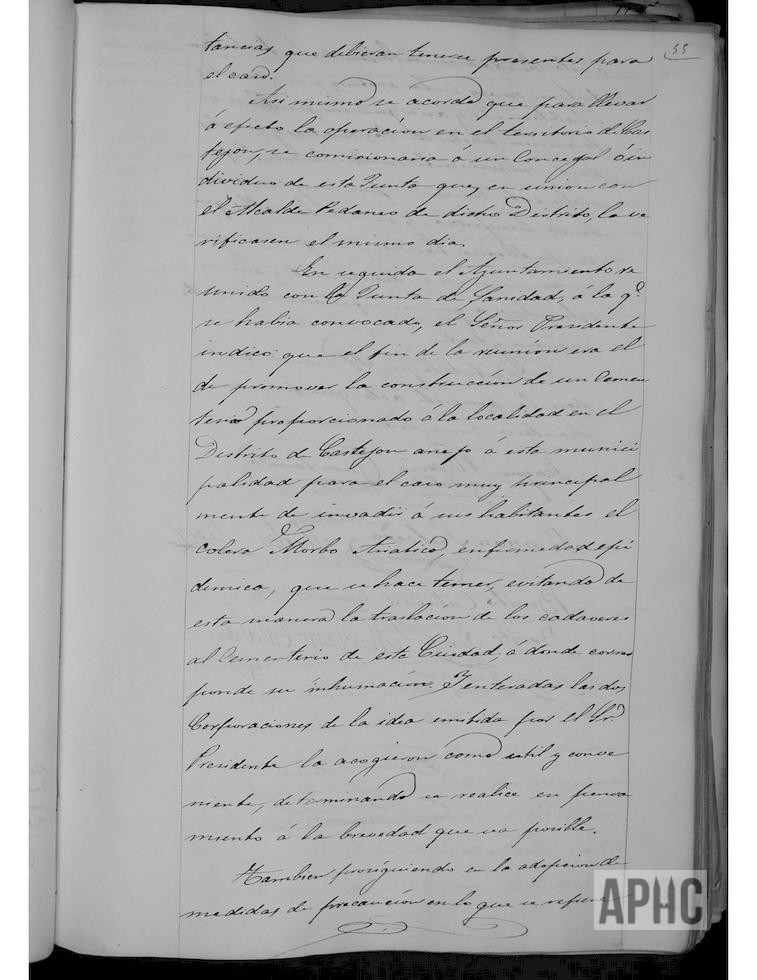 55
tancias que debieran tenerse presentes para
el caso.
Asi mismo se acordó que para llevar
á efecto la operación en el territorio de Cas
tejon, se comisionara á un Concejal ó in
dividuo de esta Junta que, en union con
el Alcalde Pedaneo de dicho Distrito, la ve
rificasen el mismo dia.
En seguida el Ayuntamiento re
unido con la Junta de Sanidad, á la q.e
se habia convocado, el Señor Presidente
indicó que el fin de la reunión era el
de promover la construcción de un Cemen
terio proporcionado á la localidad en el
Distrito de Castejon anejo á esta munici
palidad para el caso muy principal
mente de invadir á sus habitantes el
colera Morbo Asiatico, enfermedad epi
demica, que se hace temer, evitando de
esta manera la traslación de los cadaveres
al Cementerio de esta Ciudad, á donde corres
ponde su inhumación. Y enteradas las dos
Corporaciones de la idea emitida por el Sr.
Presidente la acogieron como util y conve
niente, determinando se realice su pensa
miento á la brevedad que sea posible.
Tambien prosiguiendo en la adopcion de
medidas de precaución en lo que se refiere
APHC